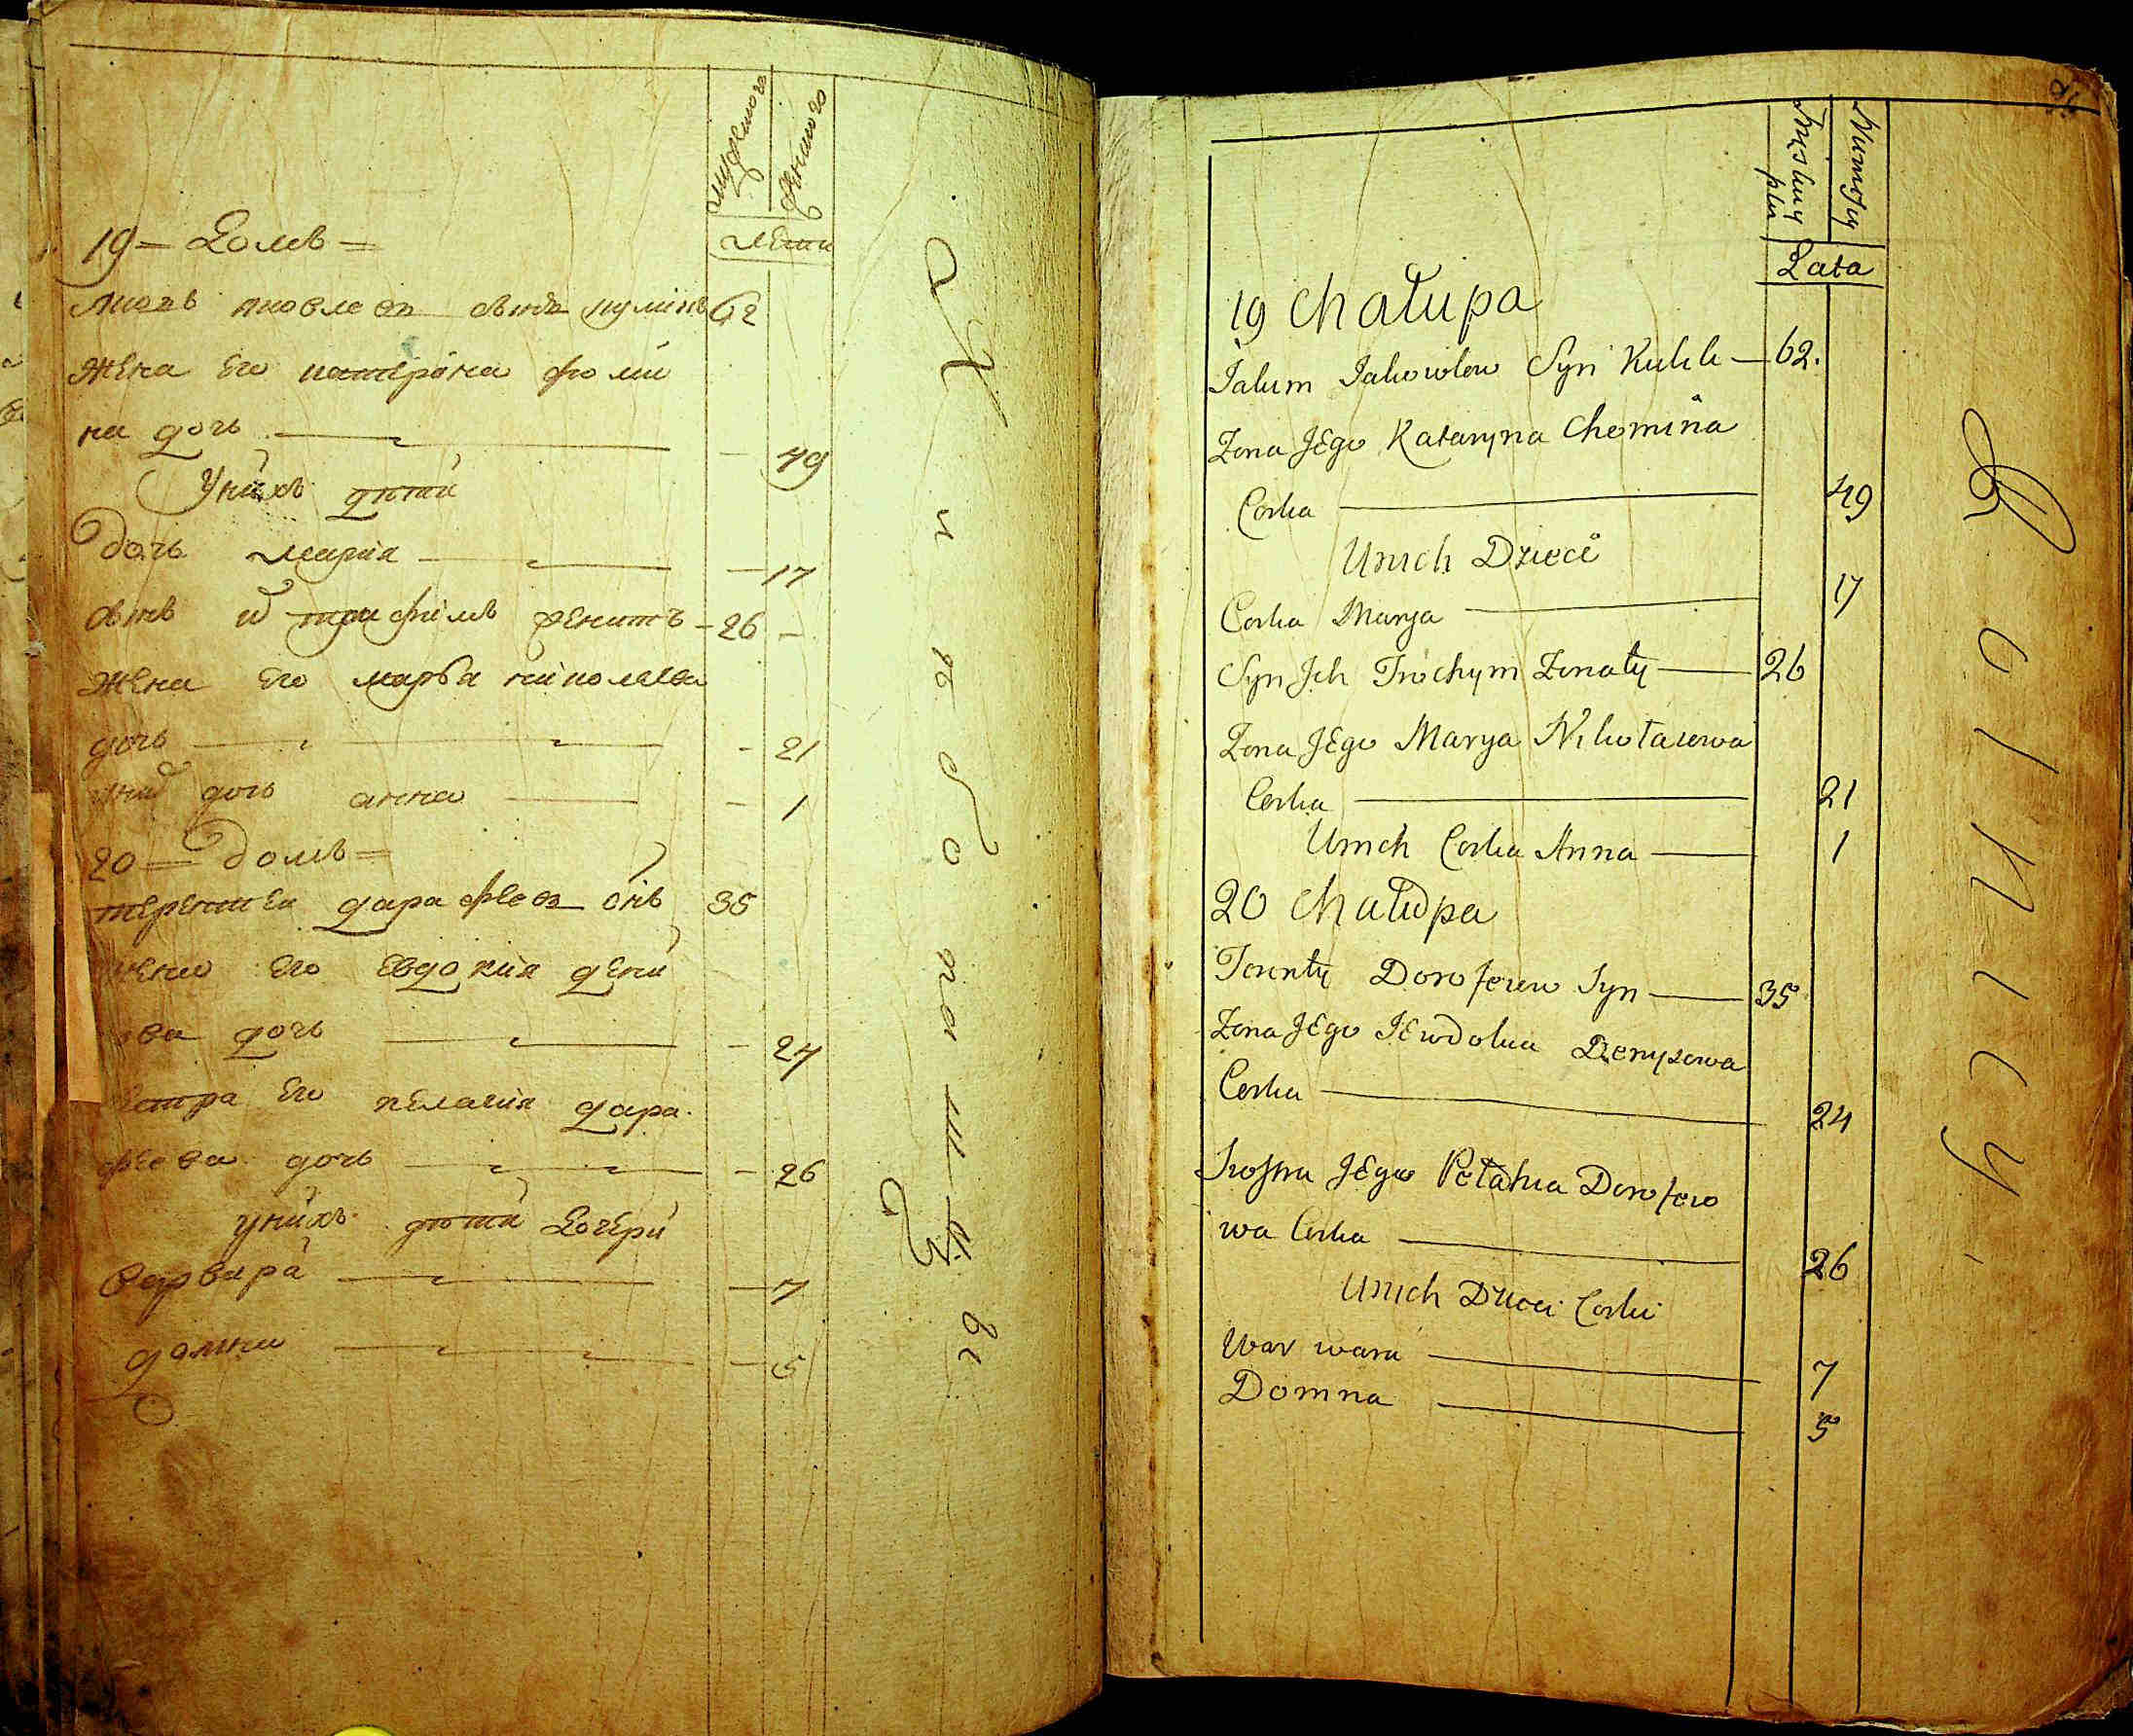 мужеска
женска
лети
19 = Домъ =
якимъ яковлевъ сынъ кулікъ 62
жена его катерина фоми
на дочь — 49
У нихъ дети
дочь мария — 17
сынъ их трифімъ женитъ - 26 -
жена его марья николаева
дочь — - 21
у них дочь анна — - 1
20 = домъ =
терентеи дарафеев снъ 35
жена его евдокия дени
ова дочь — - 24
сестра его пелагия дара
феева дочь — - 26
у нихъ дети дочери
варвара — 7
домна — 5
Męskiey płci
Niewiesciey
Lata
19 Chałupa
Jakim Jakowlew Syn Kulik — 62.
Zona Jego Kataryna Chomina
Corka — 49
U nich Dzieci
Corka Marya — 17
Syn Jch Trochym Zonaty — 26
Zona Jego Marya Nikołaiewa
Corka — 21
U nich Corka Anna — 1
20 Chałupa
Terenty Dorofeiew Syn — 35
Zona Jego Jewdokia Denysowa
Corka — 24
Siostra Jego Pełahia Dorofeio
wa Corka — 26
U nich Dzieci Corki
Warwara — 7
Domna — 5
Rolnicy